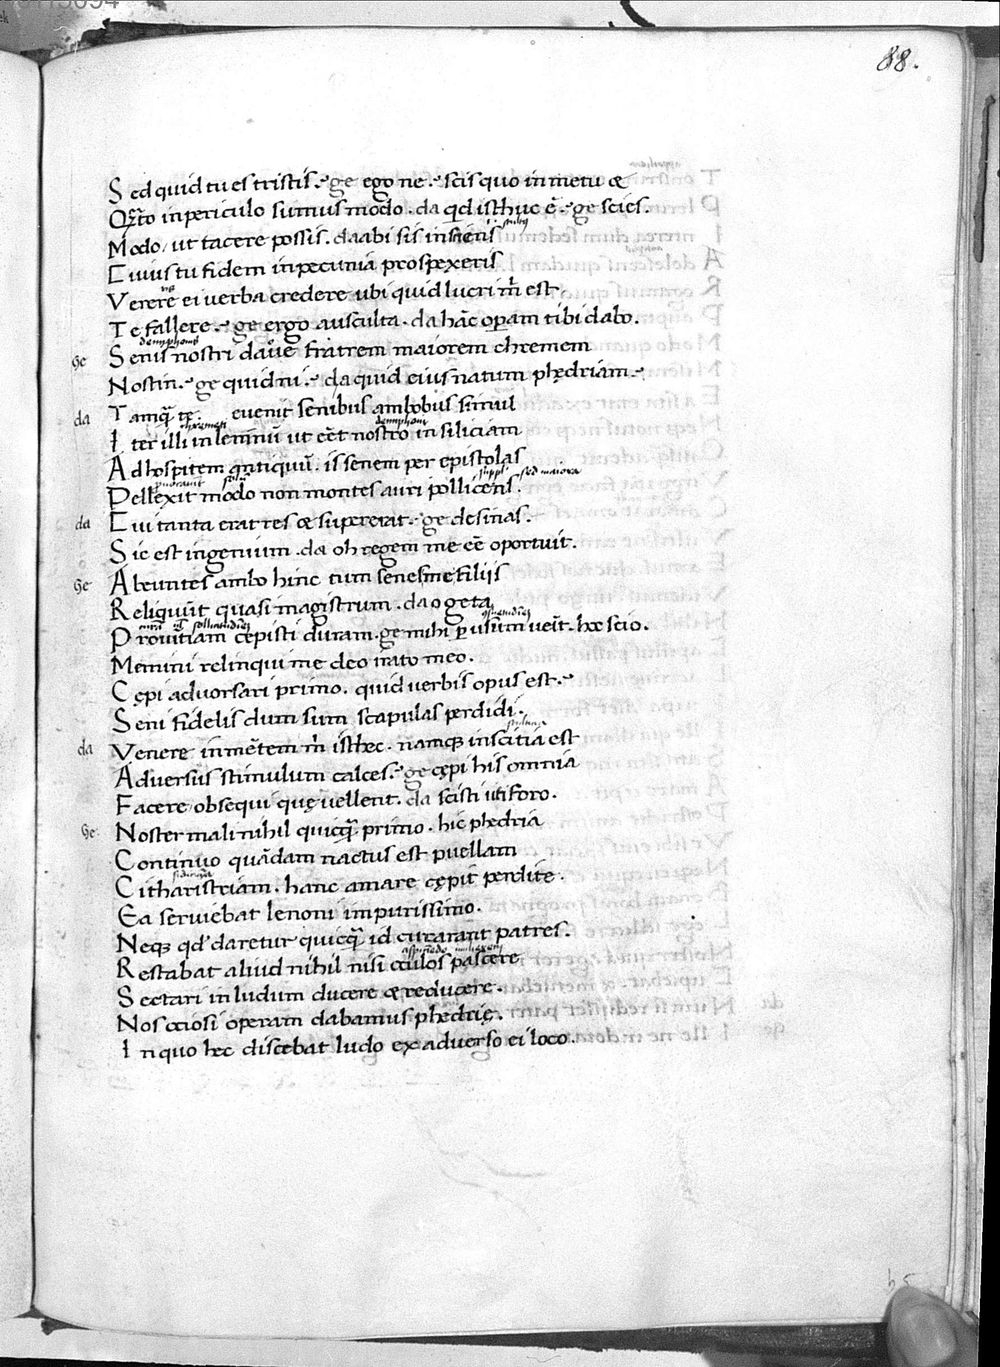 88.
Sed quid tu es tristis. ge ego ne. scis quo in metu &
Qz̄to in periculo sumus modo. da qd isthuc ē. ge scies.
Modo, ut tacere possis. da abi sis insciens
Cuius tu fidem in pecunia prospexeris
Verere ei verba credere ubi quid lucri m̄ est.
Te fallere. ge ergo ausculta. da hāc operam tibi dabo.
demiphonis
ge Senis nostri dave fratrem maiorem chremem
Nostin. ge quid ni. da quid eius natum phędriam.
da Tamq̄ te. evenit senibus ambobus simul
chremeti demiphoni
Iter illi in lemnū ut eēt nostro in siliciam
Ad hospitem antiquū. is senem per epistolas
suppl. sed maiora
Pellexit modo non montes auri pollicens.
da Cui tanta erat res & supererat. ge desinas.
Sic est ingenium. da oh regem me eē oportuit.
ge Abeuntes ambo hinc tum senes me filiis
Reliquūt quasi magistrum. da o geta
Provitiam cepisti duram. ge mihi usum ueīt. hoc scio.
Memini relinqui me deo irato meo.
Cępi advorsari primo. quid verbis opus est.
Seni fidelis dum sum scapulas perdidi.
da Venere in mētem m̄ isthec. namq; inscitia est
Adversus stimulum calces. ge cępi his omnia
Facere, obsequi quę vellent. da scisti uti foro.
ge Noster mali nihil quicq̄ primo. hic phędria
Continuo quādam nactus est puellam
Citharistriam. hanc amare cępit perdite.
Ea serviebat lenoni impurissimo.
Neq; qd daretur quicq̄ id curarant patres.
Restabat aliud nihil nisi oculos pascere
Sectari in ludum ducere & reducere.
Nos ociosi operam dabamus phędrię.
In quo hec discebat ludo ex adverso ei loco.